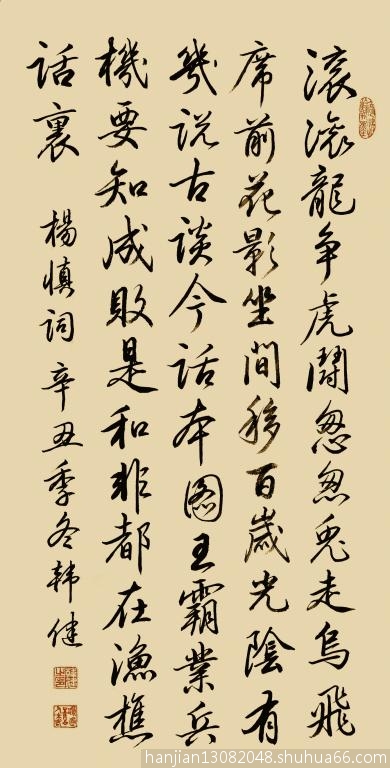 滚滚龍争虎鬪怱怱兔走烏飛
席前花影坐間移百歲光陰有
幾說古談今話本圖王霸業兵
機要知成敗是和非都在漁樵
話裏 楊慎詞 辛丑季冬韩健
hanjian13082048.shuhua66.com